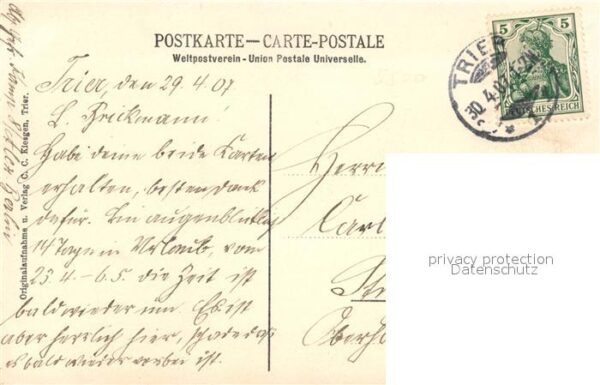 POSTKARTE—CARTE-POSTALE
Weltpostverein - Union Postale Universelle.
5 5
DEUTSCHES REICH
TRIER
30.4.07
Trier, den 29.4.07
L. Brickmann!
Habe deine beide Karten
erhalten, besten dank
dafür. Bin augenblicklich
14 Tage in Urlaub, vom
23.4.-6.5. die Zeit ist
bald wieder um Es ist
aber herrlich hier, schade das
es bald wieder vorbei ist.
Herrn
Carl
Oberh
Originalaufnahme u. Verlag C. C. Kiesgen, Trier.
privacy protection
Datenschutz